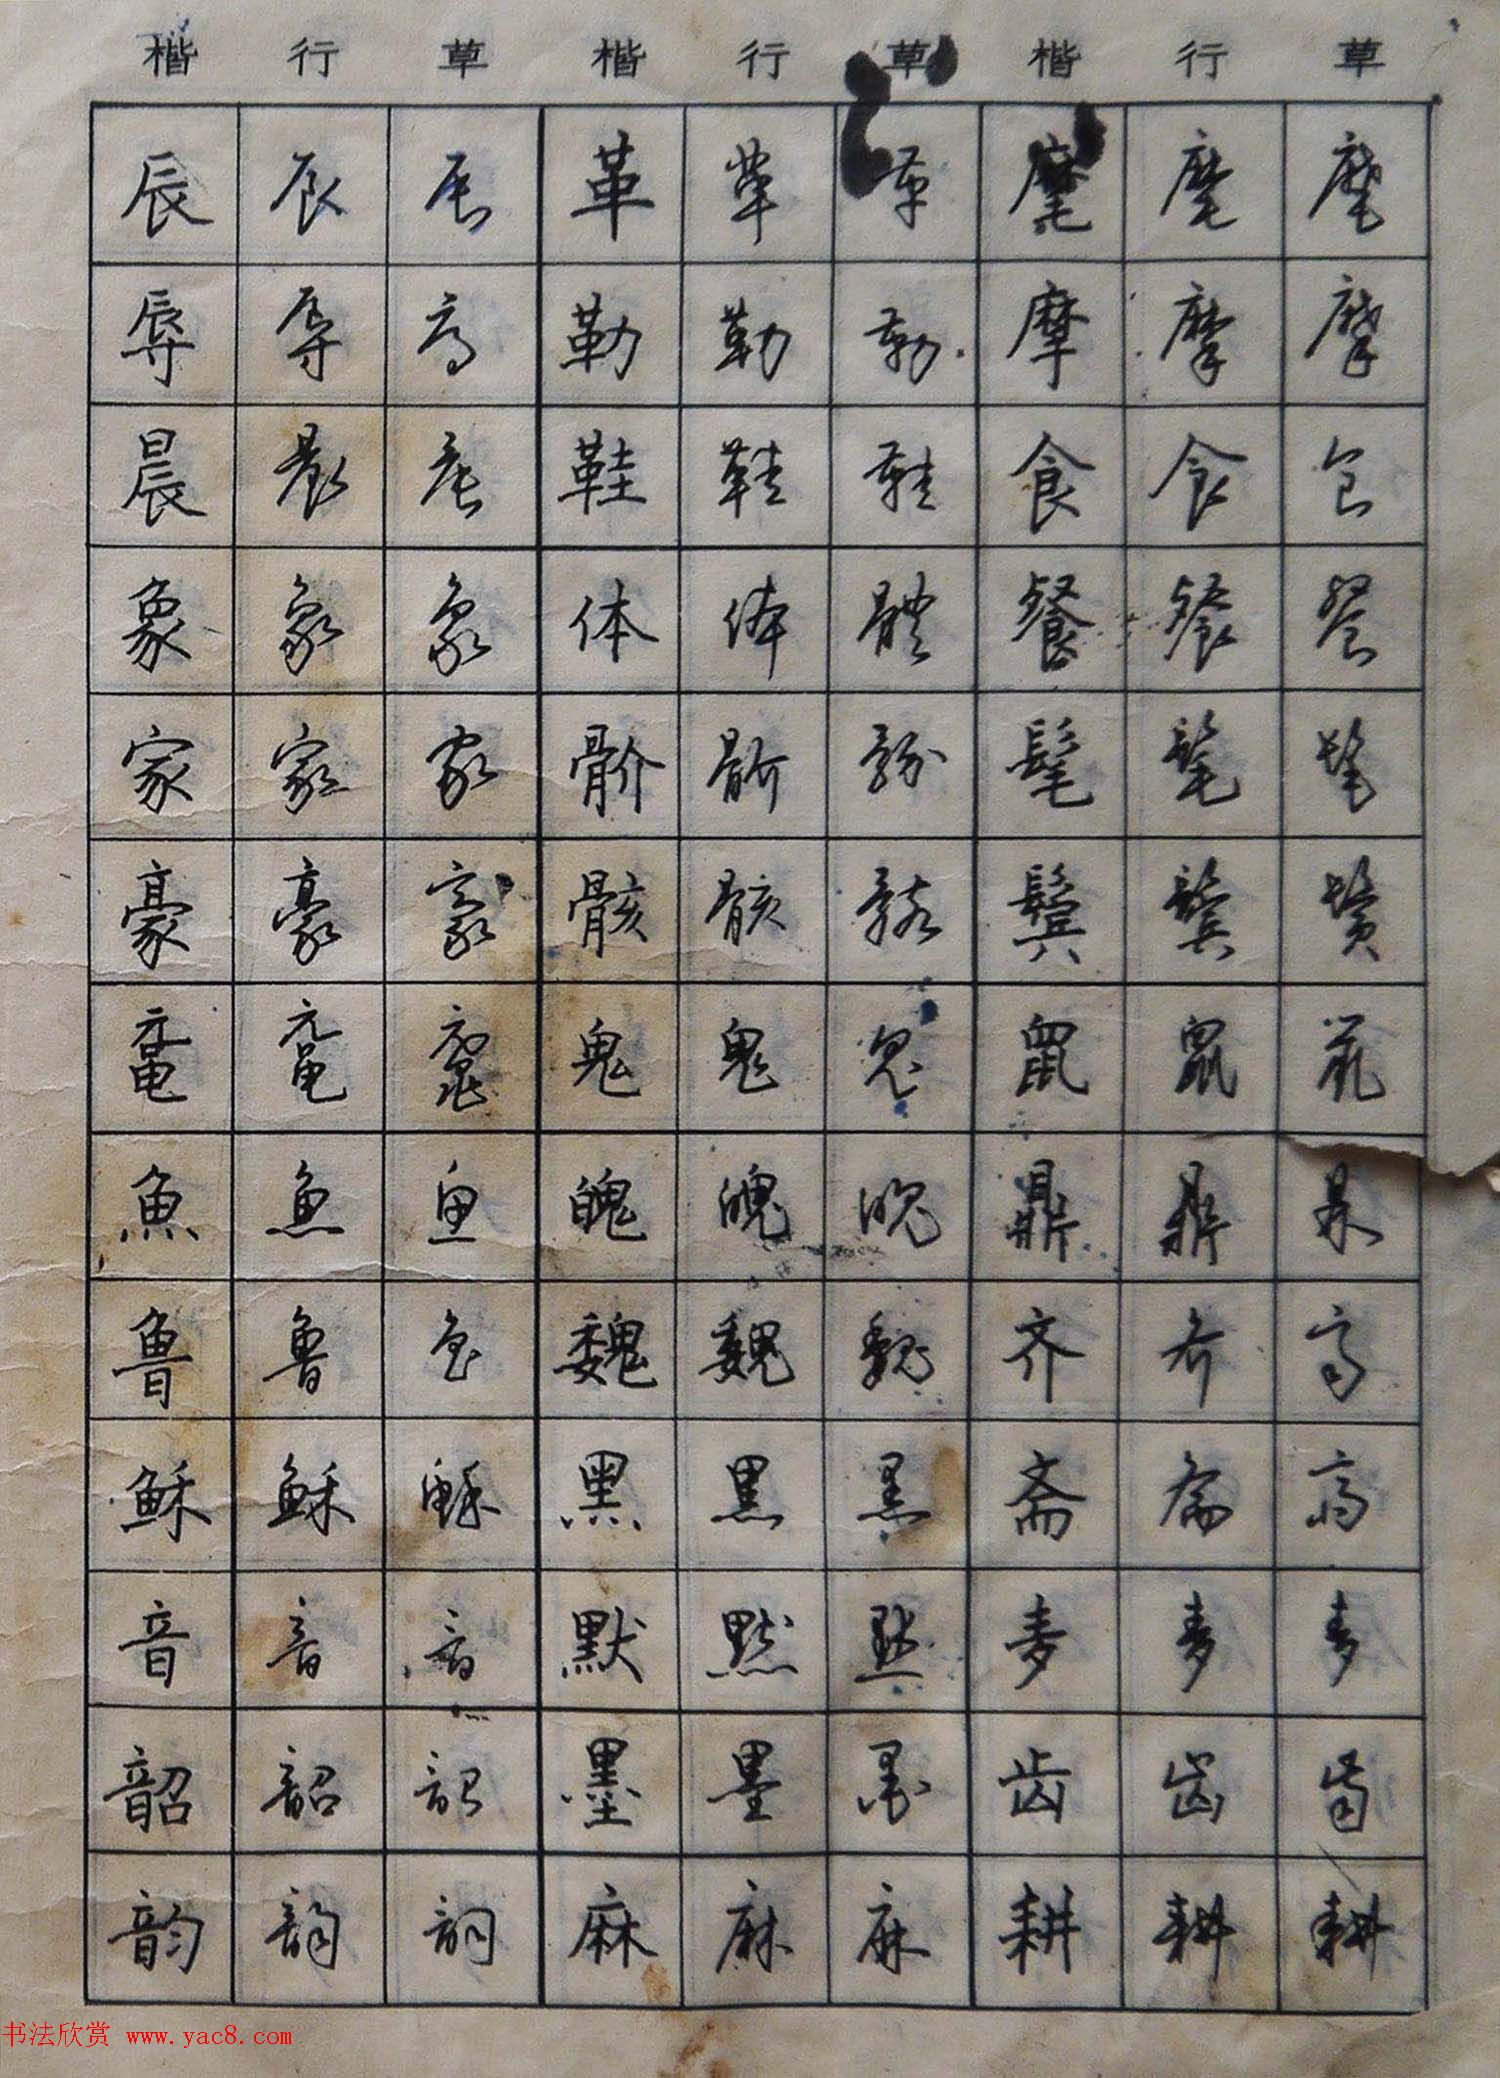 楷 行 草 楷 行 草 楷 行 草
辰 辰 辰 革 革 革 麾 麾 麾
辱 辱 辱 勒 勒 勒 摩 摩 摩
晨 晨 晨 鞋 鞋 鞋 食 食 食
象 象 象 体 体 體 餐 餐 餐
家 家 家 骱 骱 骱 髦 髦 髦
豪 豪 豪 骸 骸 骸 鬓 鬓 鬓
鼋 鼋 鼋 鬼 鬼 鬼 鼠 鼠 鼠
魚 鱼 鱼 魄 魄 魄 鼎 鼎 鼎
鲁 鲁 鲁 魏 魏 魏 齐 齐 齐
稣 稣 稣 黑 黑 黑 斋 斋 斋
音 音 音 默 默 默 麦 麦 麦
韶 韶 韶 墨 墨 墨 齿 齿 齿
韵 韵 韵 麻 麻 麻 耕 耕 耕
书法欣赏 www.yac8.com